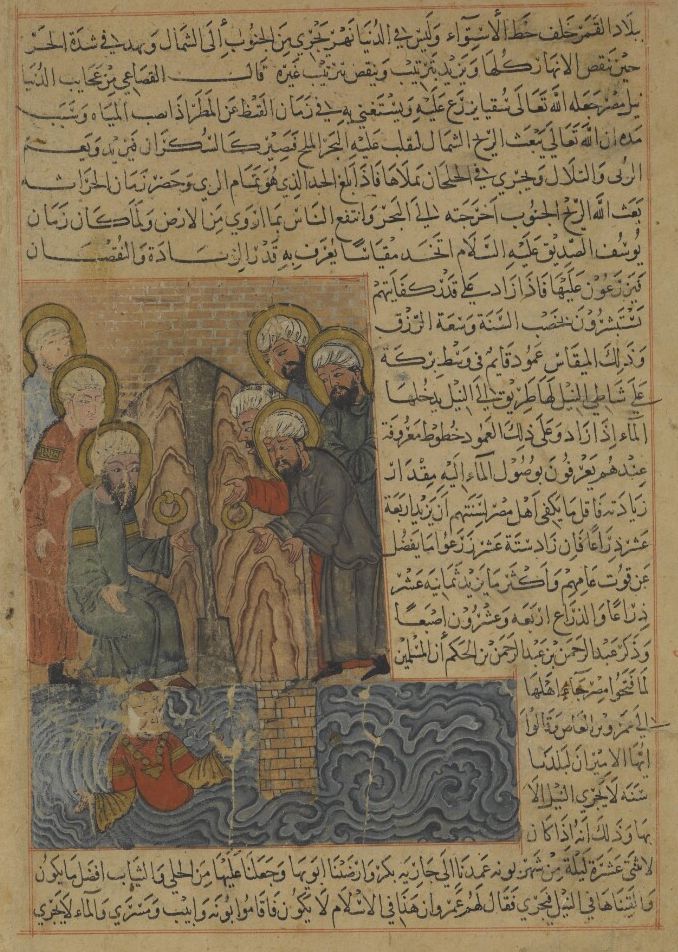 بلاد القمر خلف خط الاستواء وليس في الدنيا نهر يجري من الجنوب الى الشمال ويمد في شدة الحر
حين تنقص الانهار كلها ويزيد بترتيب وينقص بترتيب غيره قال القضاعي من عجايب الدنيا
نيل مصر جعله الله تعالى سقيا يزرع عليه ويستغنى به في زمان القيظ عن المطر اذا نضب المياه وسبب
مده ان الله تعالى يبعث الريح الشمال ليقلب عليه البحر الملح فيصير كالسكر له فيزيد ويعم
الربى والتلال ويجري في الخلجان يملاها فاذا بلغ الحد الذي هو تمام الري وحضر زمان الحراثة
بعث الله الريح الجنوب اخرجته الى البحر وانتفع الناس بما اروى من الارض ولما كان زمان
يوسف الصديق عليه السلام اتخذ مقياسا يعرف به قدر الزيادة والنقصان
فيزرعون عليها فاذا زاد على قدر كفايتهم
يستبشرون بخصب السنة وسعة الرزق
وذلك المقياس عمود قايم في وسط بركة
على شاطى النيل لها طريق الى النيل يدخلها
الماء اذا زاد وعلى ذلك العمود خطوط معروفة
عندهم يعرفون بوصول الماء اليه مقدار
زيادته فاقل ما يكفي اهل مصر لسنتهم ان يزيد اربعة
عشر ذراعا فان زاد ستة عشر زرعوا ما يفضل
عن قوت عامهم واكثر ما يزيد ثمانيه عشر
ذراعا والذراع اربعه وعشرون اصبعا
وذكر عبد الرحمن بن عبد الرحمن بن الحكم ان المسلمين
لما فتحوا مصر جاء اهلها
الى عمرو بن العاص وقالوا
ايها الامير ان لبلدنا
سنه لا يجري النيل الا
بها وذلك انه اذا كان
لاثنى عشرة ليلة من شهر بونه عمدنا الى جاريه بكر وارضينا ابويها وجعلنا عليها من الحلي والثياب افضل ما يكون
والقيناها في النيل فيجري فقال لهم عمرو ان هذا في الاسلام لا يكون فاقاموا بونه وابيب ومسرى والماء لا يجري